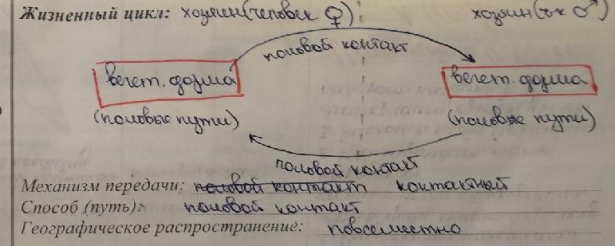 Жизненный цикл: хозяин (человек ♀) хозяин (ч-к ♂)
половой контакт
вегет. форма вегет. форма
(половые пути) (половые пути)
половой контакт
Механизм передачи: половой контакт контактный
Способ (путь): половой контакт
Географическое распространение: повсеместно